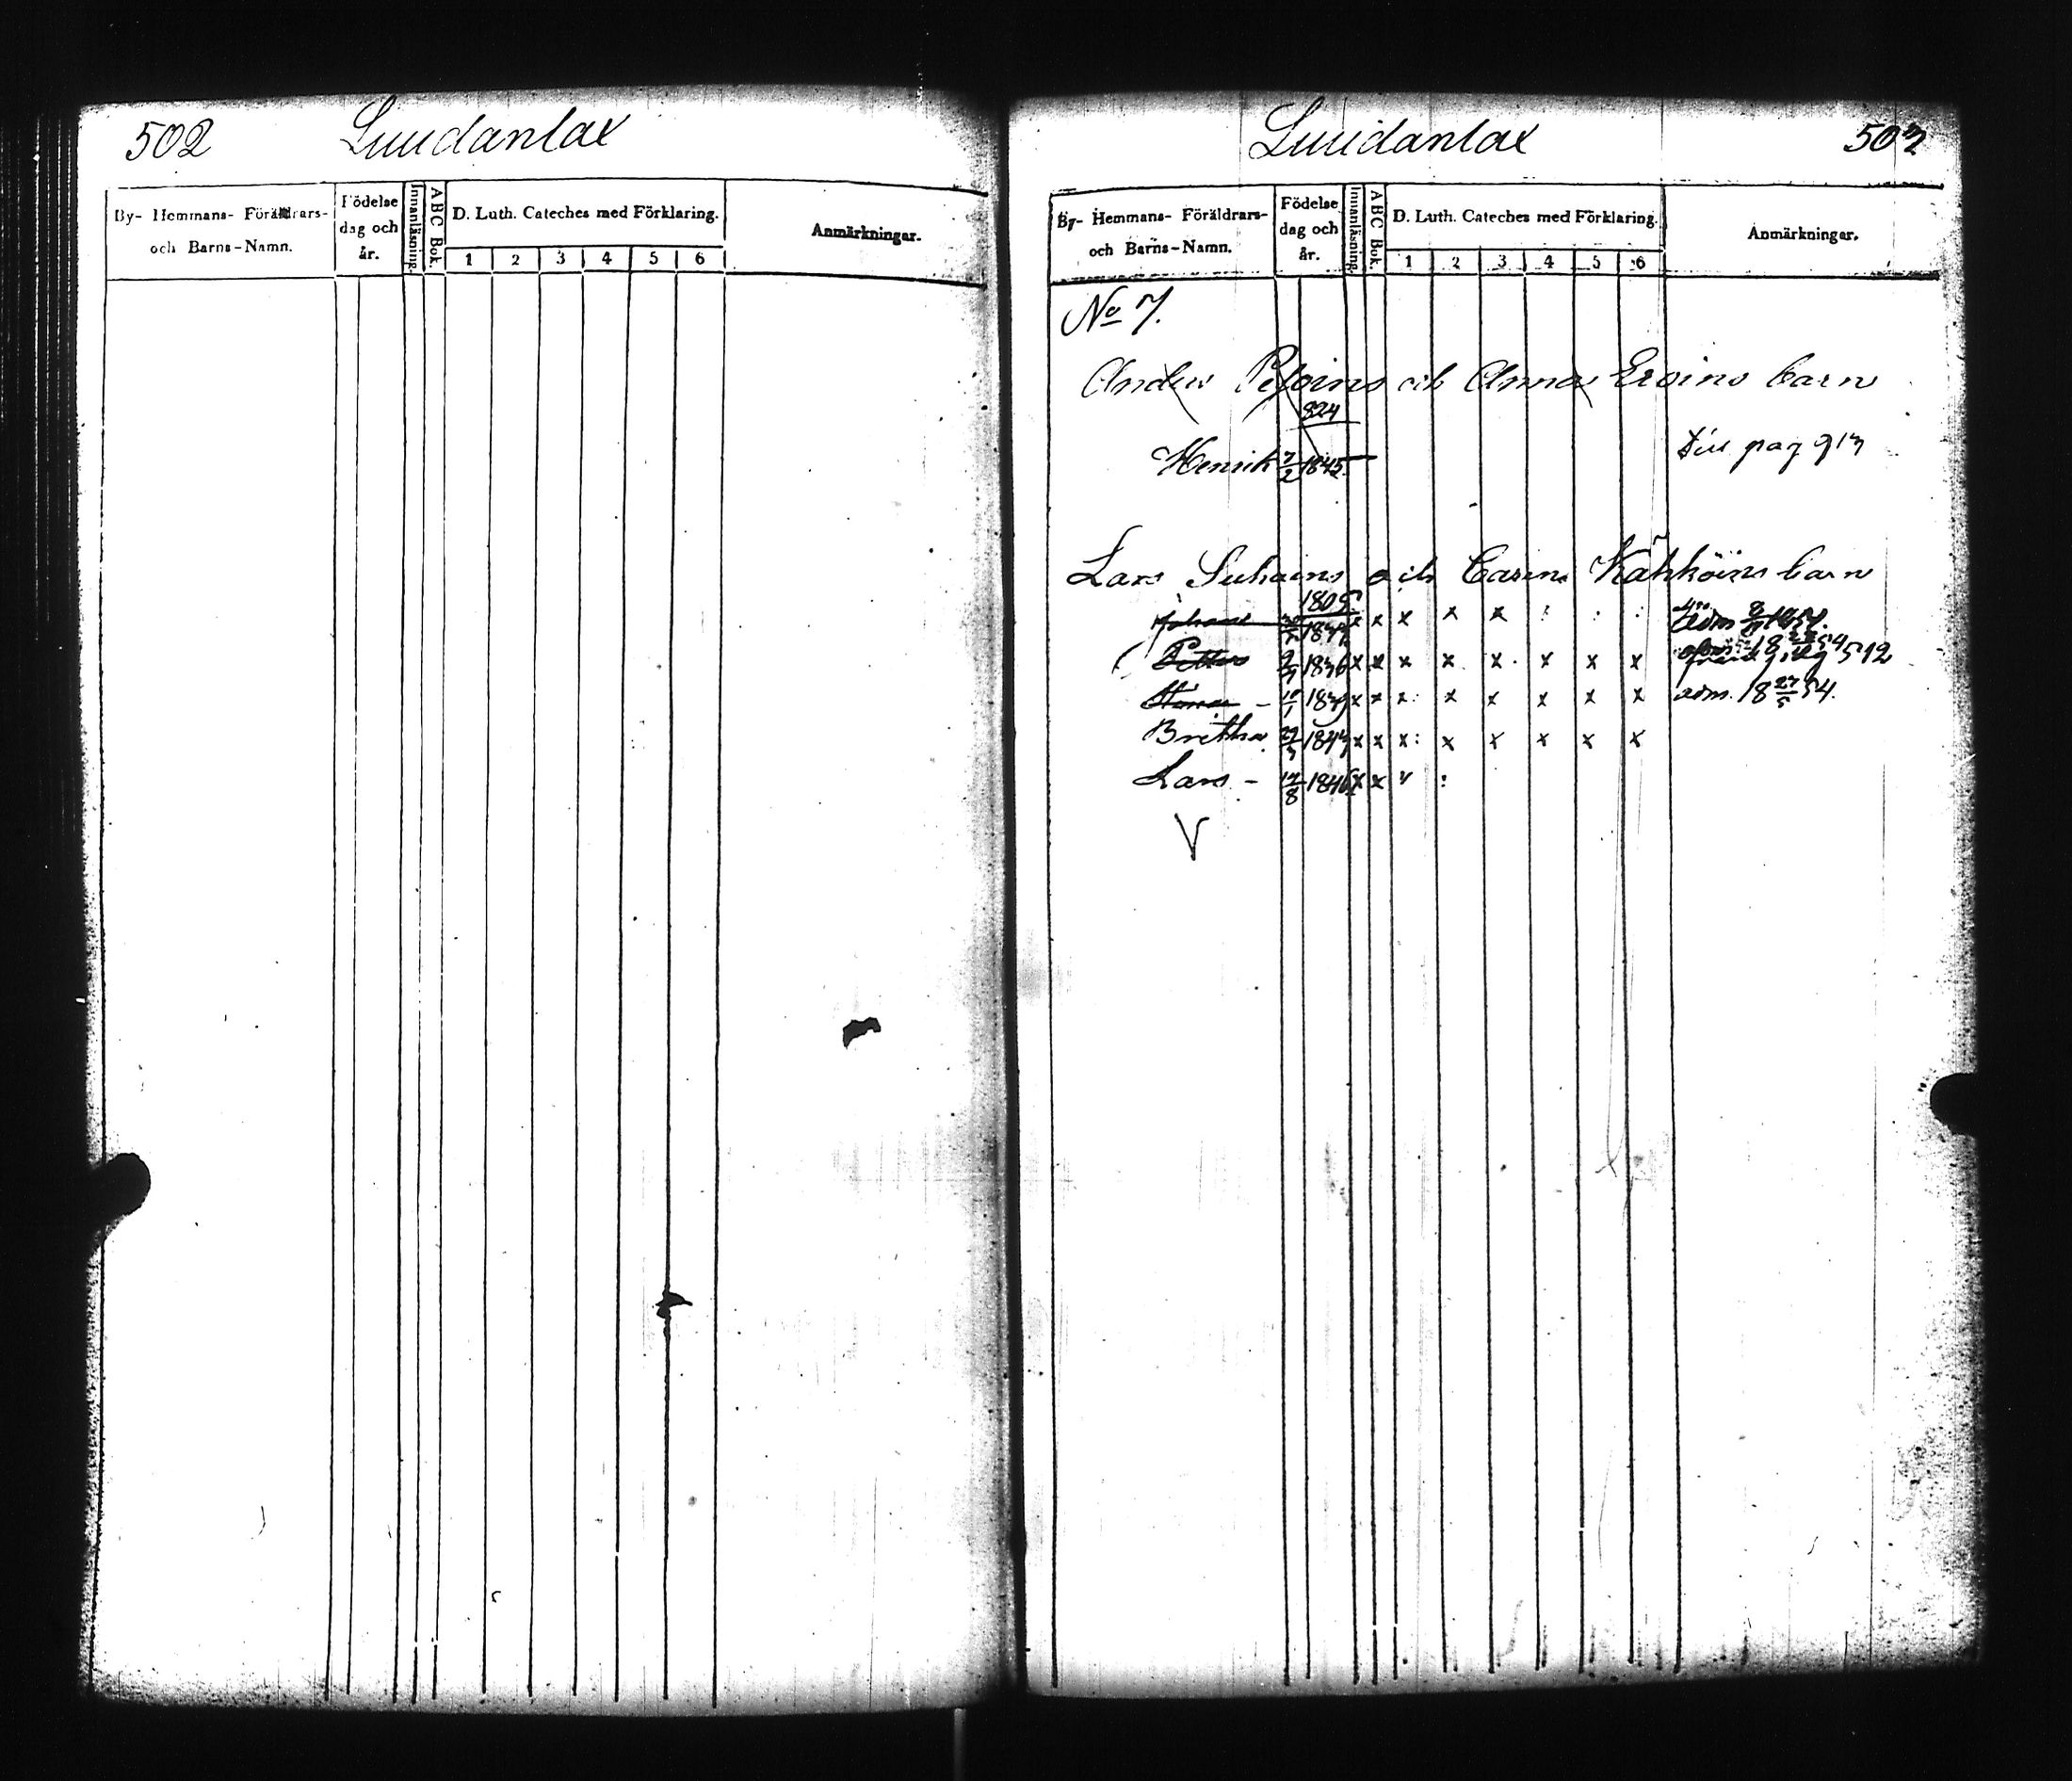 502 Luudanlax
By- Hemmans- Föräldrars- och Barns-Namn.
Födelse dag och år.
Innanläsning.
ABC Bok.
D. Luth. Cateches med Förklaring.
1 2 3 4 5 6
Anmärkningar.
Luudanlax 503
By- Hemmans- Föräldrars- och Barns-Namn.
Födelse dag och år.
Innanläsning.
ABC Bok.
D. Luth. Cateches med Förklaring.
1 2 3 4 5 6
Anmärkningar.
No 7.
Anders och Anna Eroins barn
824
Henrik 7/2 1845 pag 913
Lars Suhoins och Carin Kähköins barn
1805
Johan x x x x x : : : adm
Petter 1836 x x x x x x x x 512
Anna - 10/1 1839 x x x: x x x x x adm. 18 27/5 54.
Britha 27/3 1843 x x x: x x x x x
Lars - 17/8 1846 x x v :
V